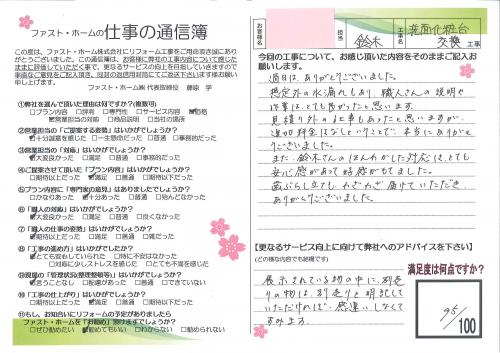 ファスト・ホームの仕事の通信簿
この度は、ファスト・ホーム株式会社にリフォーム工事をご用命頂き誠にあり
がとうございました。この通信簿は、お客様に弊社の工事内容について感じた
ままに評価していただく事で、更なるサービスの向上を目指していきますので
率直なご意見をご記入頂き、同封の返信用封筒にてご返送下さいます様お願い
申し上げます。
ファスト・ホーム㈱ 代表取締役 藤峰 学
①弊社を選んで頂いた理由は何ですか?(複数可)
□プラン内容 □評判 □専門性 □サービス内容 □価格
□営業担当の対応 □商品説明 □当社の場所
②営業担当の「ご提案する姿勢」はいかがでしょうか?
□十分誠意を感じた □一生懸命だった □普通 □事務的だった
③営業担当の「対応」はいかがでしょうか?
□大変良かった □満足 □普通 □事務的だった
④ご提案させて頂いた「プラン内容」はいかがでしょうか?
□期待以上だった □満足 □普通 □期待以下だった
⑤プラン内容に「専門家の意見」はありましたでしょうか?
□かなりあった □十分あった □普通 □殆んどなかった
⑥「職人の対応」はいかがでしょうか?
□大変良かった □満足 □普通 □良くなかった
⑦「職人の仕事の姿勢」はいかがでしょうか?
□期待以上だった □満足 □普通 □雑だった
⑧「工事の進め方」はいかがでしたか?
□とても安心していられた □特に不安はなかった
□対応に少しストレスを感じた □とても不満を感じた
⑨現場の「管理状況(整理整頓等)」はいかがでしたか?
□言うことなし □配慮があった □普通 □できていない
⑩「工事の仕上がり」はいかがでしょうか?
□期待以上だった □満足 □普通 □期待以下だった
⑪もし、お知り合いにリフォームの予定がありましたら
ファスト・ホームを「お勧め」頂けますでしょうか
□ぜひ勧めたい □勧めてもいい □わからない □勧められない
お客様名
工事名
鈴木
洗面化粧台
交換 工事
今回の工事について、お感じ頂いた内容をそのままご記入お
願いします。
過日は、ありがとうございました。
想定外の水漏れもあり、職人さんの説明や
作業は、とても良かったと思います。
見積り外の工事もあったと思いますが、
追加料金はなしということで、本当にありがとう
ございました。
また、鈴木さんのほんわかした対応は、とても
安心感があって好感がもてました。
歯ぶらし立ても、わざわざ届けていただき、
ありがとうございました。
【更なるサービス向上に向けて弊社へのアドバイスを下さい】
(どの様な内容でも結構です)
満足度は何点ですか?
展示されている物の中に、別売
りの物は、別売りと明記して
いただければ、感違いしなくて
すみます。
95/100